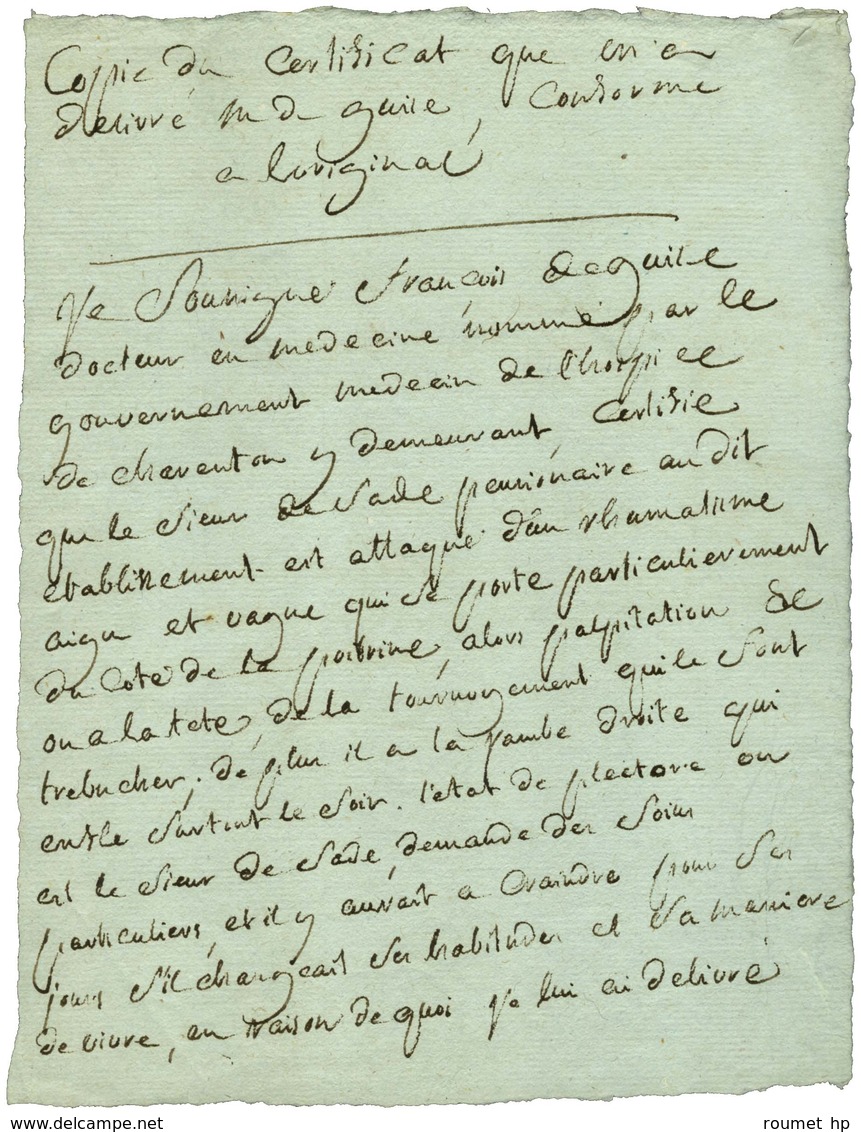 Copie du Certificat que m'a
delivré M de guise, Conforme
a loriginal
Je Soussigné François deguise
docteur en medecine nommé par le
gouvernement medecin de lhospice
de charenton y demeurant, Certifie
que le Sieur de Sade pensionaire au dit
etablissement est attaqué d'un rhumatisme
aigu et vague qui se porte particulierement
du coté de la poitrine, alors palpitation de
ou a la tete, de la tournoyement qui le font
trebucher; de plus il a la jambe droite qui
enfle surtout le soir. l'etat de plectore ou
est le Sieur de Sade, demande des Soins
particuliers, et il y aurait a Craindre pour Ses
jours S'il changeait Ses habitudes et Sa maniere
de vivre, en raison de quoi je lui ai delivré
roumet hp